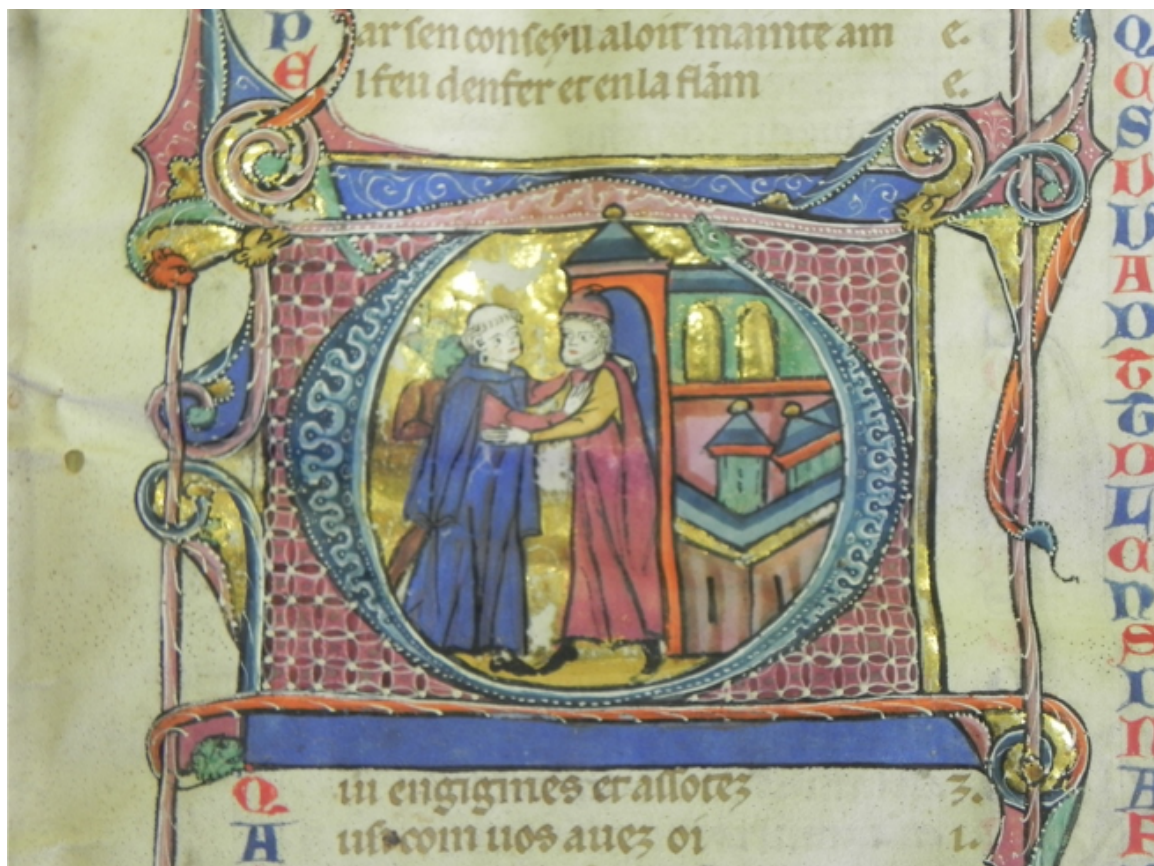 P ar sen conseyll aloit mainte am e.
E l feu denfer et en la flām e.
Q ui engignies et assotez z.
A usi com uos auez oi i.
Q
C
S
V
V
A
D
T
T
D
L
E
N
S
I
N
A